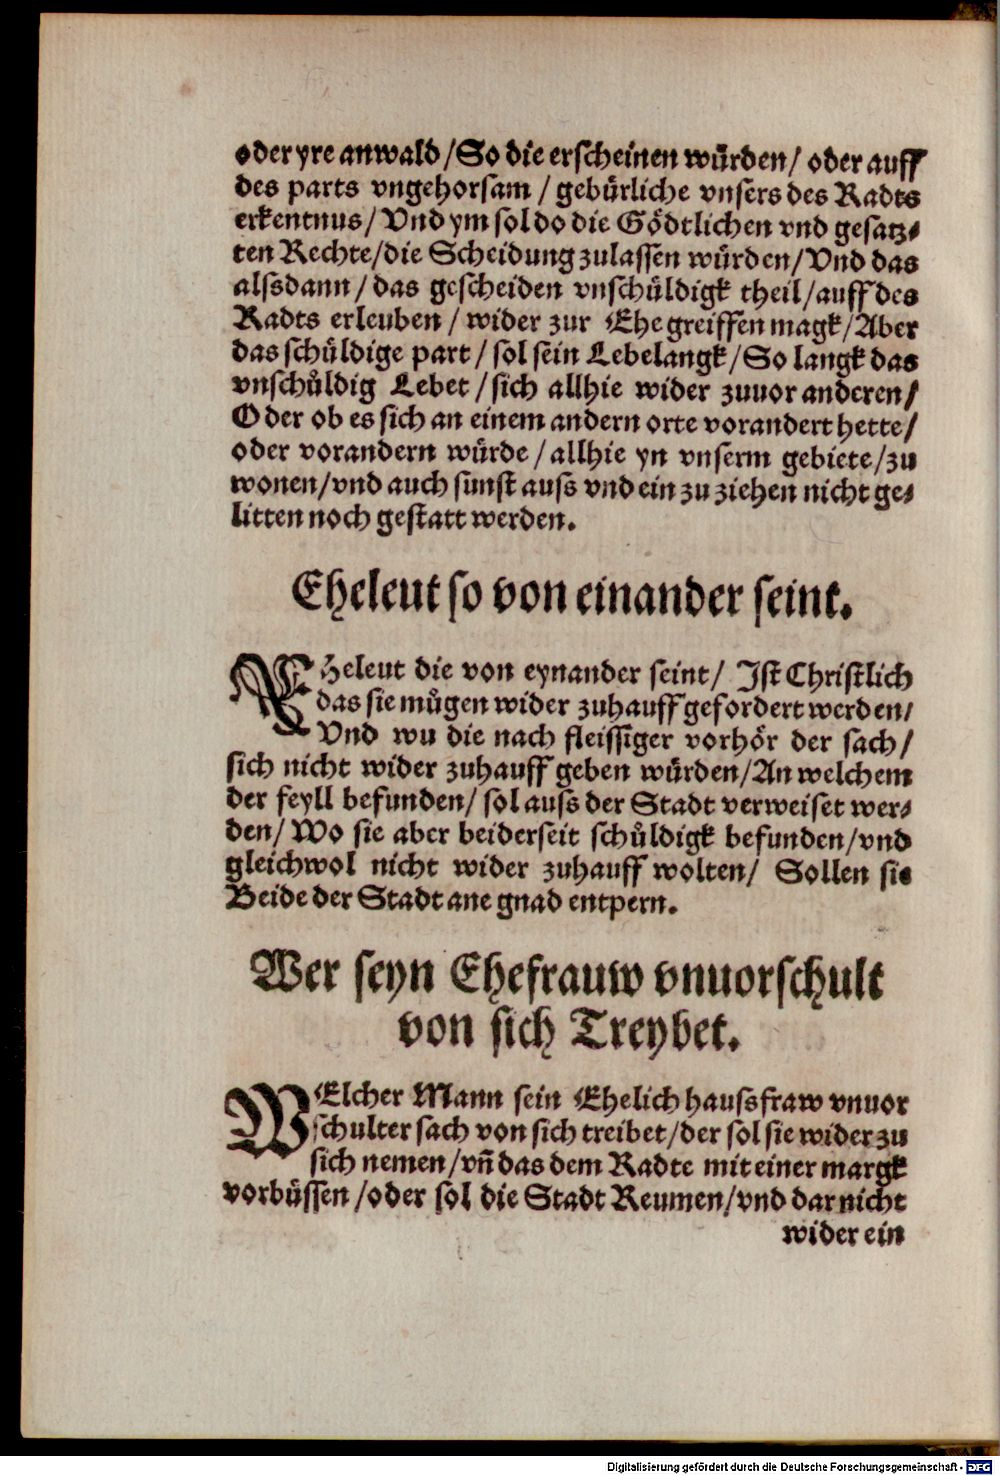 oder yre anwald / So die erscheinen würden / oder auff
des parts vngehorsam / gebürliche vnsers des Radts
erkentnus / Vnd ym sol do die Gödtlichen vnd gesatz⸗
ten Rechte / die Scheidung zulassen würden / Vnd das
alsdann / das gescheiden vnschüldigk theil / auff des
Radts erleuben / wider zur Ehe greiffen magk / Aber
das schüldige part / sol sein Lebelangk / So langk das
vnschüldig Lebet / sich allhie wider zuuor anderen /
Oder ob es sich an einem andern orte vorandert hette /
oder vorandern würde / allhie yn vnserm gebiete / zu
wonen / vnd auch sunst auss vnd ein zu ziehen nicht ge⸗
litten noch gestatt werden.
Eheleut so von einander seint.
EHeleut die von eynander seint / Ist Christlich
das sie mügen wider zuhauff gefordert werden /
Vnd wu die nach fleissiger vorhör der sach /
sich nicht wider zuhauff geben würden / An welchem
der feyll befunden / sol auss der Stadt verweiset wer⸗
den / Wo sie aber beiderseit schüldigk befunden / vnd
gleichwol nicht wider zuhauff wolten / Sollen sie
Beide der Stadt ane gnad entpern.
Wer seyn Ehefrauw vnuorschult
von sich Treybet.
WElcher Mann sein Ehelich haussfraw vnuor
schulter sach von sich treibet / der sol sie wider zu
sich nemen / vñ das dem Radte mit einer margk
vorbüssen / oder sol die Stadt Reumen / vnd dar nicht
wider ein
Digitalisierung gefördert durch die Deutsche Forschungsgemeinschaft - DFG